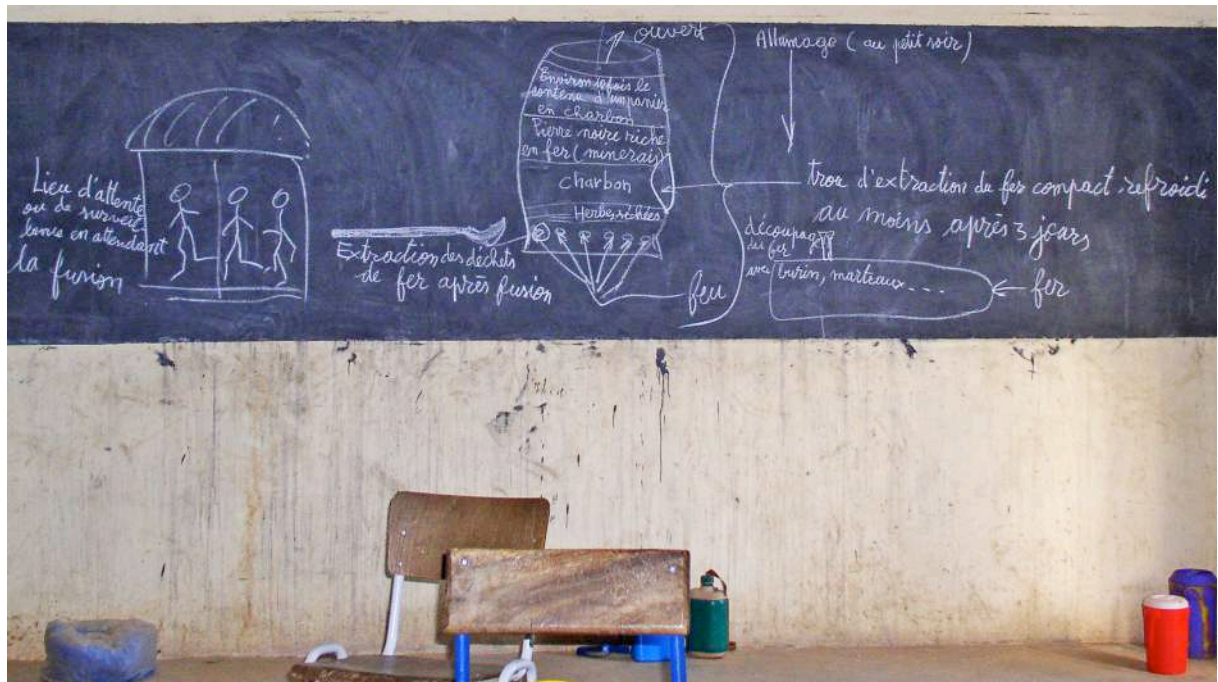 Lieu d'attente
ou de surveil
lance en attendant
la fusion
Extraction des déchets
de fer après fusion
ouvert
Environ fois le
contenu d'un panier
en charbon
Pierre noire riche
en fer (minerais)
charbon
Herbes séchées
feu
Allumage (au petit soir)
trou d'extraction du fer compact refroidi
au moins après 3 jours
découpage
du fer
avec burin, marteaux....
fer